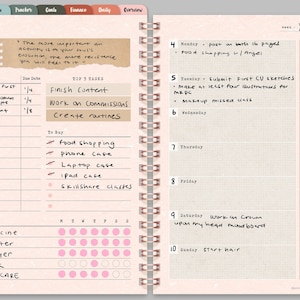 Trackers
Goals
Finance
Daily
Overview
"The more important an
activity is to your soul's
evolution, the more resistance
you will feel to it"
Due Date
TOP 3 TASKS
Finish Content
Work on Commissions
Create routines
To Buy
Food shopping
phone case
Laptop case
ipad case
Skillshare classes
M T W T F S S
CARE
4 Monday • Post on both IG pages
• Food shopping w/ Angel
5 Tuesday • Submit first CV sketches
• Make at least four illustrations for
• Makeup missed work
6 Wednesday
7 Thursday
8 Friday
9 Saturday Work on Crown
upon my head moodboard
10 Sunday Start hair